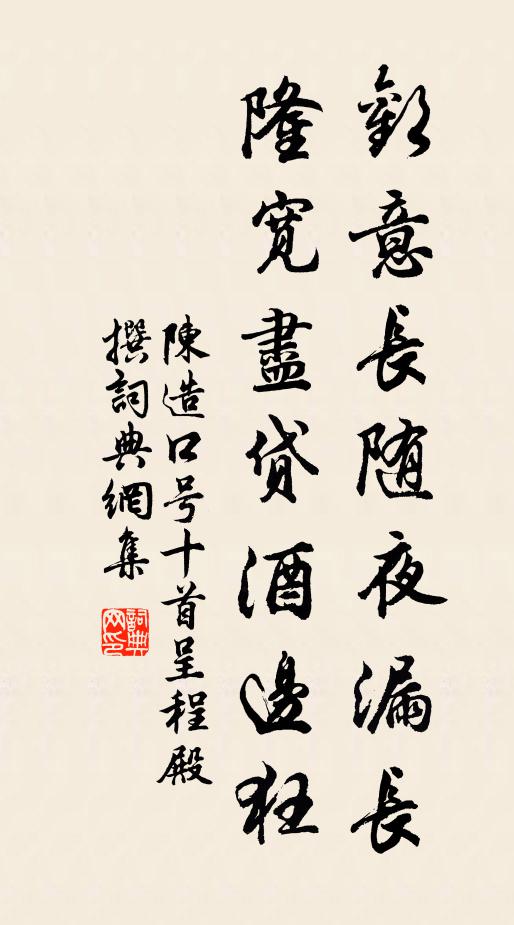 歡意長隨夜漏長
隆寬盡貸酒邊狂
陳造口号十首呈程殿
撰詞典網集
詞典網印